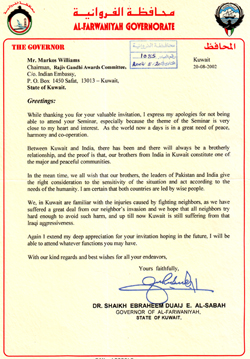 محافظة الفروانية
AL-FARWANIYAH GOVERNORATE
THE GOVERNOR
المحافظ
Mr. Murkos Williams
Kuwait
Chairman, Rajiv Gandhi Awards Committee,
20-08-2002
C/o. Indian Embassy,
P. O. Box. 1450 Safat, 13013 – Kuwait,
State of Kuwait.
Greetings:
While thanking you for your valuable invitation, I express my apologies for not being
able to attend your Seminar, especially because the theme of the Seminar is very
close to my heart and interest. As the world now a days is in a great need of peace,
harmony and co-operation.
Between Kuwait and India, there has been and there will always be a brotherly
relationship, and the proof is that, our brothers from India in Kuwait constitute one of
the major and peaceful communities.
In the mean time, we all wish that our brothers, the leaders of Pakistan and India give
the right consideration to the sensitivity of the situation and act according to the
needs of the humanity. I am certain that both countries are led by wise people.
We, in Kuwait are familiar with the injuries caused by fighting neighbors, as we have
suffered a great deal from our neighbor's invasion and we hope that all neighbors try
hard enough to avoid such harm, and up till now Kuwait is still suffering from that
Iraqi aggressiveness.
Again I extend my deep appreciation for your invitation hoping in the future, I will be
able to attend whatever functions you may have.
With our kind regards and best wishes for all your endeavors,
Yours faithfully,
DR. SHAIKH EBRAHEEM DUAIJ E. AL-SABAH
GOVERNOR OF AL-FARWANIYAH,
STATE OF KUWAIT.